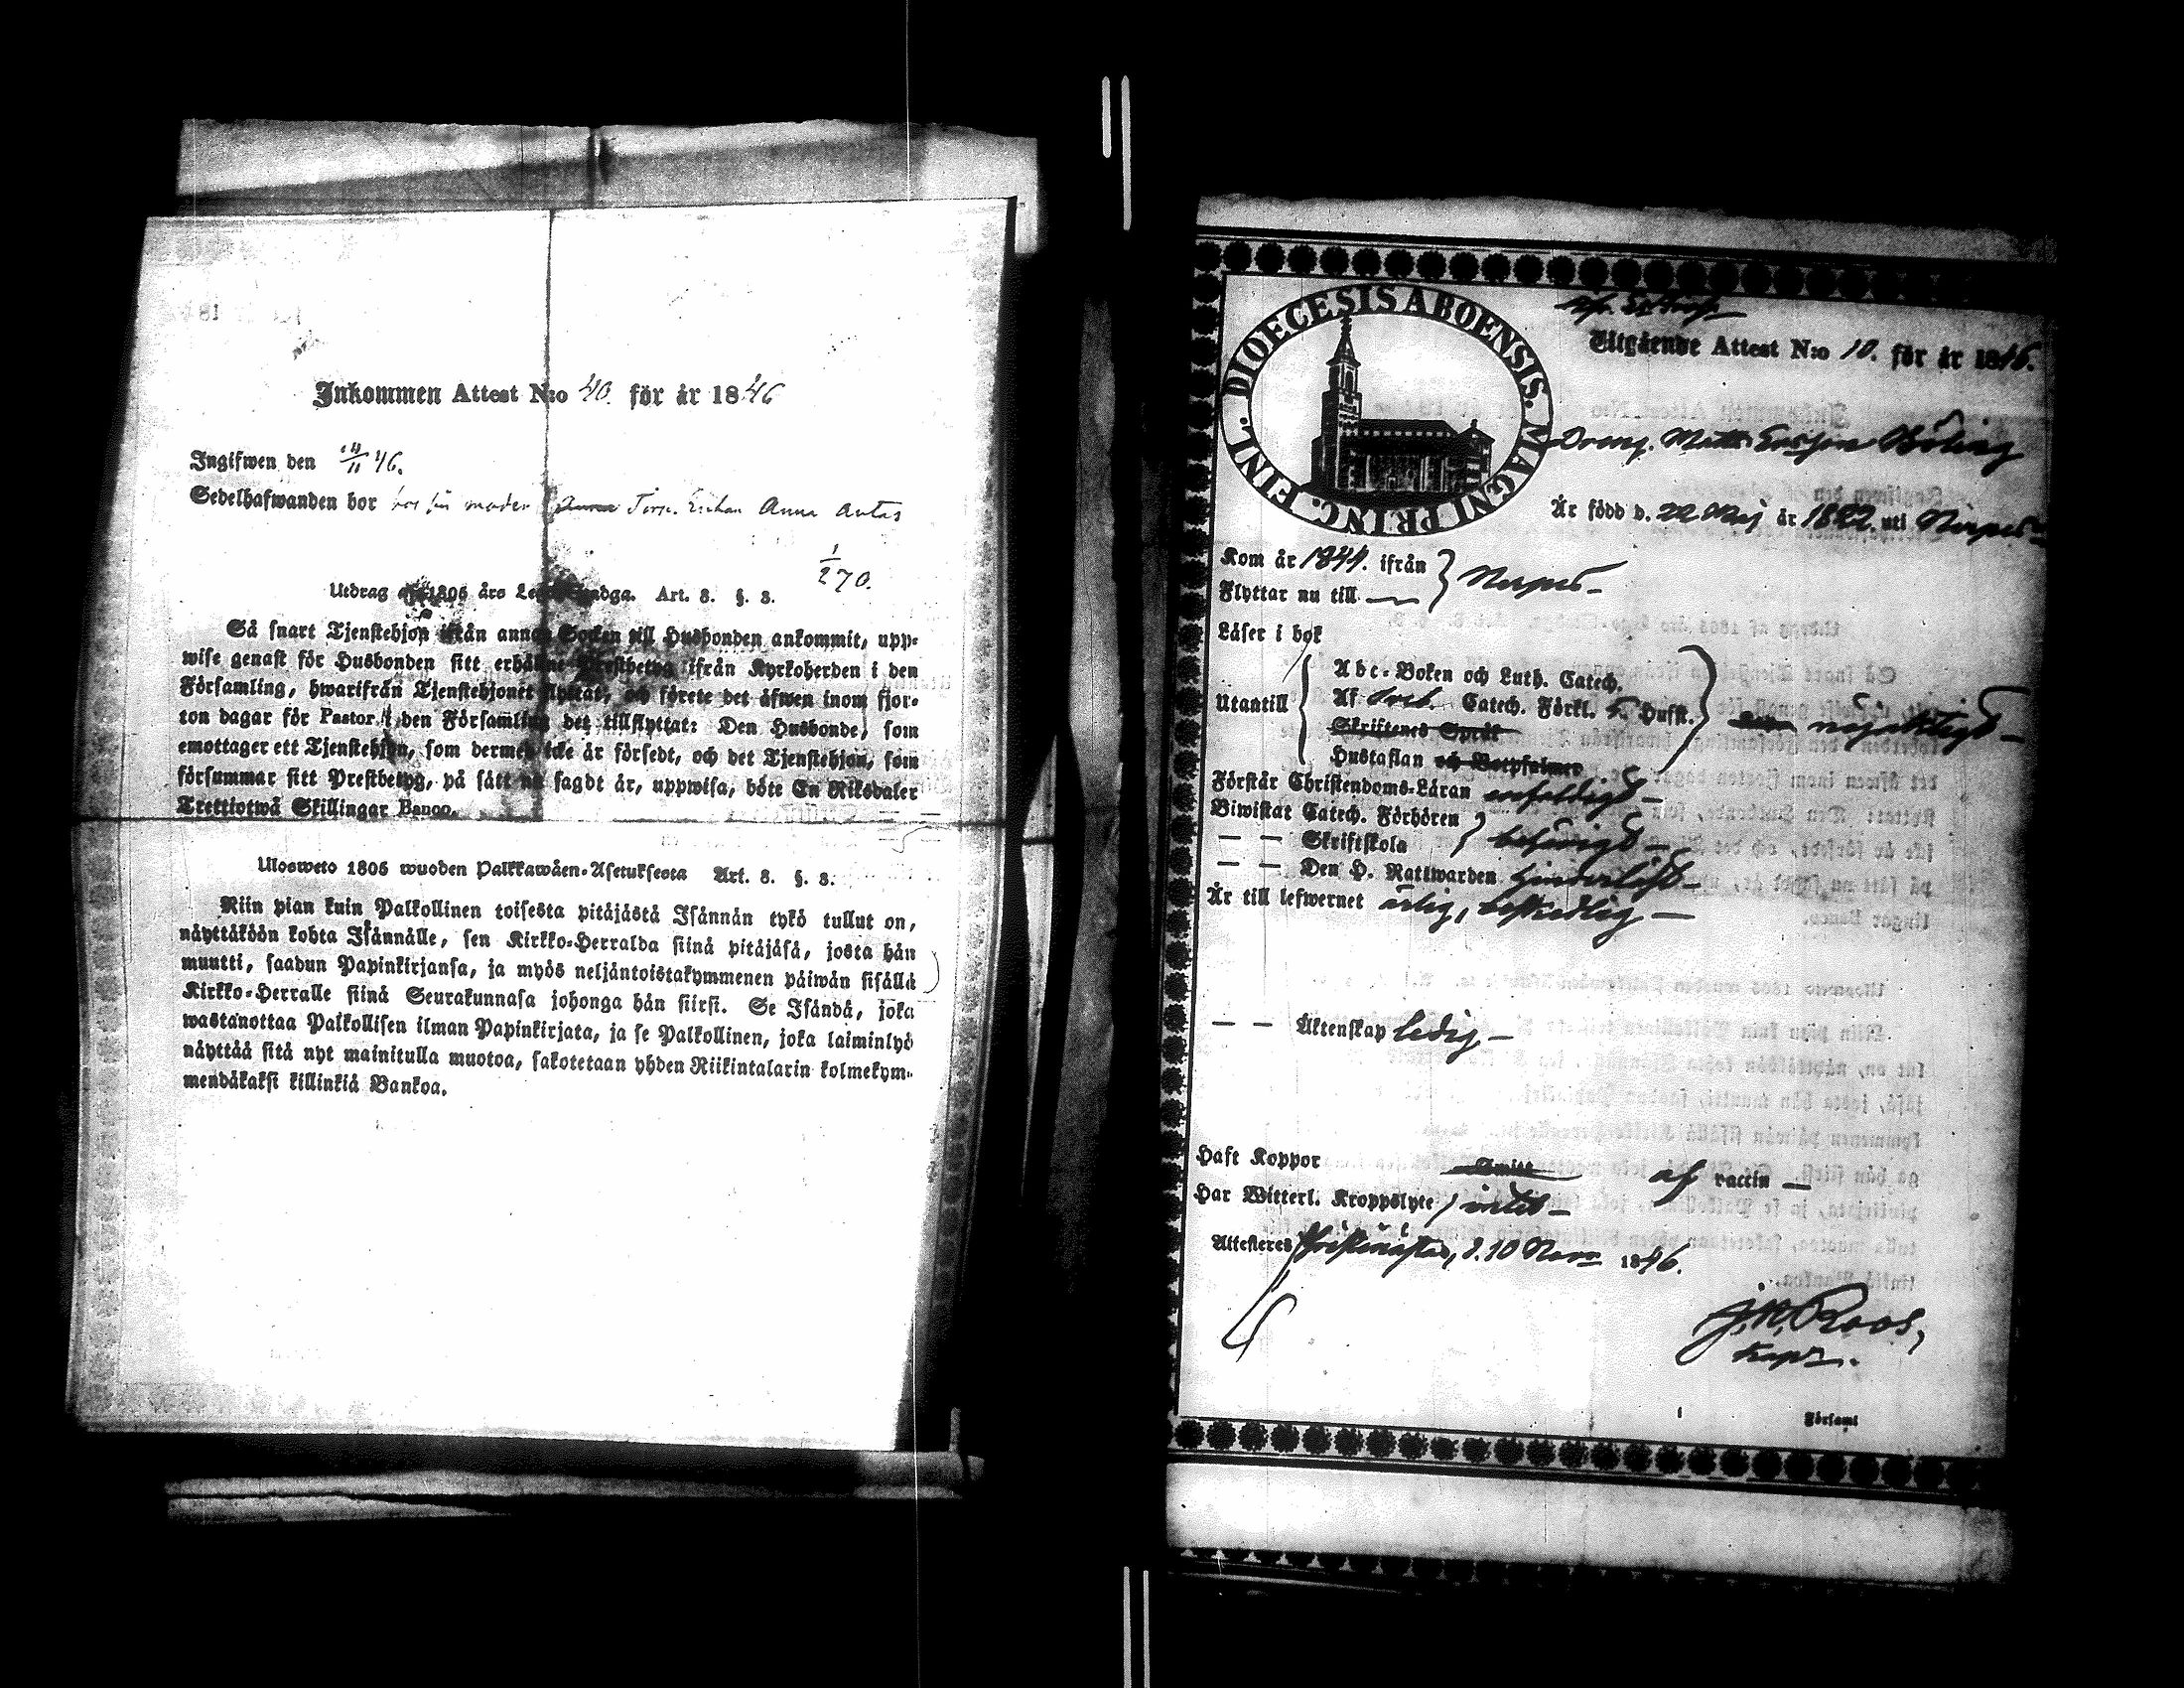 Inkommen Attest N:o 40. för år 1846
Ingifwen den 14/11 46.
Sedelhafwanden bor hos sin moder Anna Antas
1/270.
Utdrag af 1805 års Lego-Stadga. Art. 8. §. 3.
Så snart Tjenstehjon ifrån annan Socken till Husbonden ankommit, upp-
wise genast för Husbonden sitt erhållne Prestbetyg ifrån Kyrkoherden i den
Församling, hwarifrån Tjenstehjonet flyttat, och förete det äfwen inom fjor-
ton dagar för Pastor i den Församling det tillflyttat: Den Husbonde, som
emottager ett Tjenstehjon, som dermed icke är försedt, och det Tjenstehjon, som
försummar sitt Prestbetyg, på sätt nu sagdt är, uppwisa, böte En Riksdaler
Trettiotwå Skillingar Banco.
Ulosweto 1805 wuoden Palkkawäen-Asetuksesta Art. 8. §. 3.
Niin pian kuin Palkollinen toisesta pitäjästä Isännän tykö tullut on,
näyttäköön kohta Isännälle, sen Kirkko-Herralda siinä pitäjäsä, josta hän
muutti, saadun Papinkirjansa, ja myös neljäntoistakymmenen päiwän sisällä
Kirkko-Herralle siinä Seurakunnasa johonga hän siirsi. Se Isändä, joka
wastanottaa Palkollisen ilman Papinkirjata, ja se Palkollinen, joka laiminlyö
näyttää sitä nyt mainitulla muotoa, sakotetaan yhden Riikintalarin kolmekym-
mendäkaksi killinkiä Bankoa.
DIOECESIS ABOENSIS. MAGNI PRINC. FINL.
Utgående Attest N:o 10. för år 1846.
Dreng. Matts Ersson Böling
Är född d. 22 Maj år 1822. uti Nerpes
Kom år 1844. ifrån } Nerpes
Flyttar nu till
Läser i bok
Abc-Boken och Luth. Catech.
Utantill Af Sveb. Catech. Förkl. 5. Hufst. nöjaktigt
Skriftenes Språk
Hustaflan och Botpsalmer
Förstår Christendoms-Läran enfaldigt
Biwistat Catech. Förhören
— — Skriftskola } behörigt
— — Den H. Nattwarden
Är till lefwernet ärlig, beskedlig
— — Äktenskap ledig
Haft Koppor Smitt af vaccin
Har Witterl. Kroppslyte intet
Attesteras Christinestad, d. 10 Nov. 1846.
J. H. Roos,
Kapl.
Församl